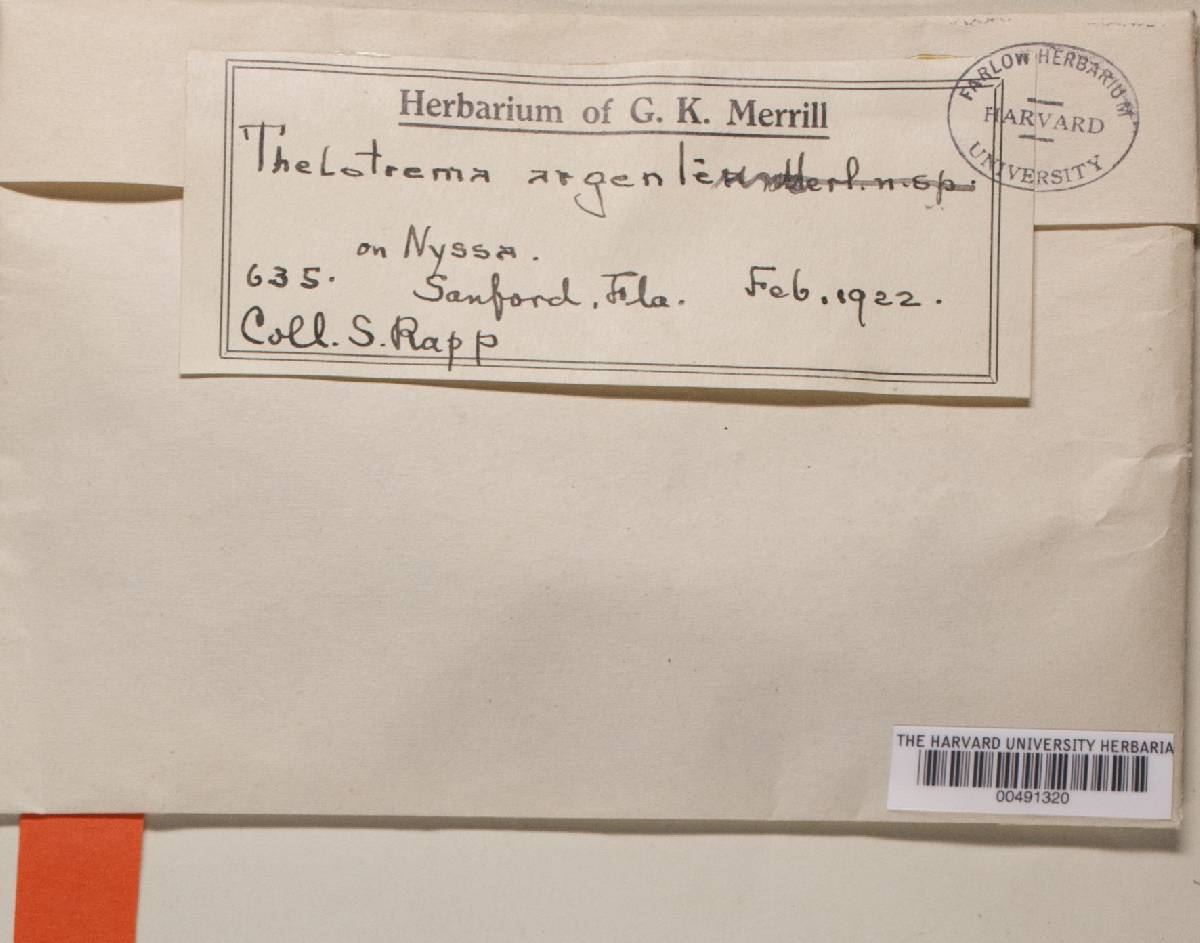 Herbarium of G. K. Merrill
FARLOW HERBARIUM
HARVARD
UNIVERSITY
Thelotrema n.sp.
on Nyssa.
635. Sanford, Fla. Feb. 1922.
Coll. S. Rapp
THE HARVARD UNIVERSITY HERBARIA
00491320